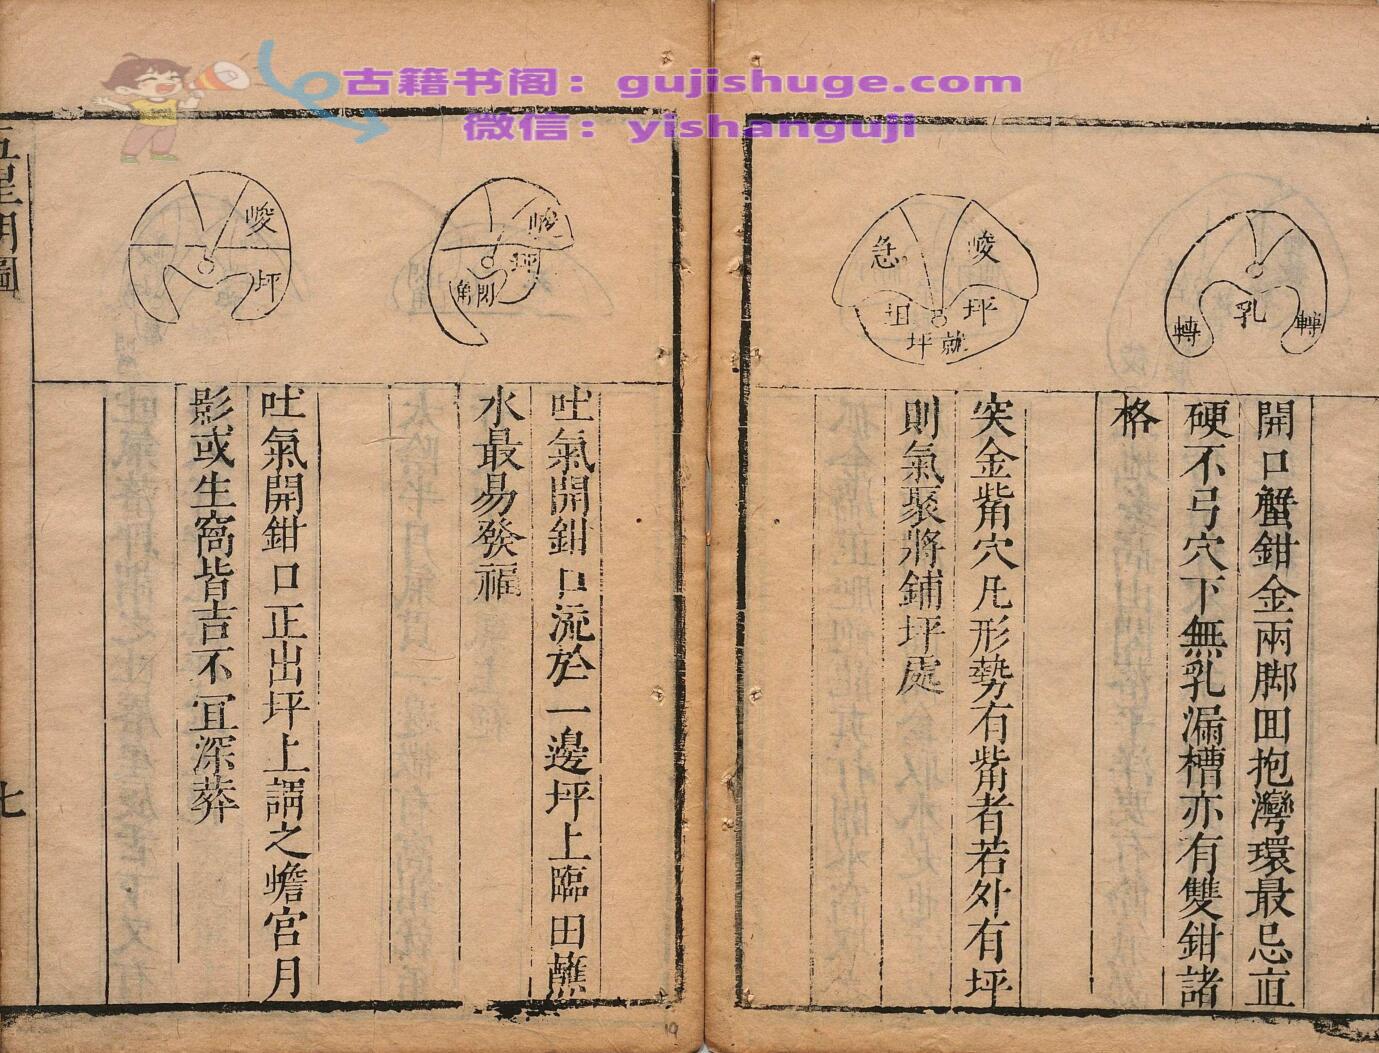 古籍书阁：gujishuge.com
微信：yishanguji
乳
轉
轉
開口蟹鉗金兩脚回抱灣環最忌直
硬不弓穴下無乳漏槽亦有雙鉗諸
格
峻
急
坪
坦
就
坪
突金觜穴凡形勢有觜者若外有坪
則氣聚將鋪坪處
峻
坪
閃
角
吐氣開鉗口流於一邊坪上臨田蘸
水最易發福
峻
坪
吐氣開鉗口正出坪上謂之蟾宮月
影或生窩皆吉不宜深葬
七